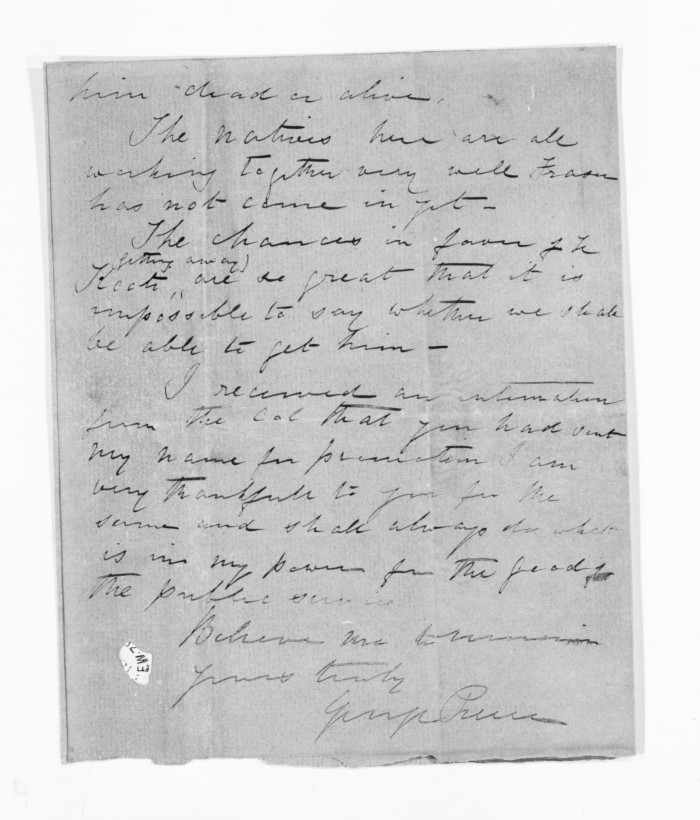 him dead or alive.
The Natives here are all
working together very well Fraser
has not come in yet —
The chances in favor of Te
(getting away)
Kooti are so great that it is
impossible to say whether we shall
be able to get him —
I received an intimation
from the Col that you had sent
my name for promotion I am
very thankfull to you for the
same and shall always do what
is in my power for the good of
the public service
Believe me to remain
yours truly
George Preece